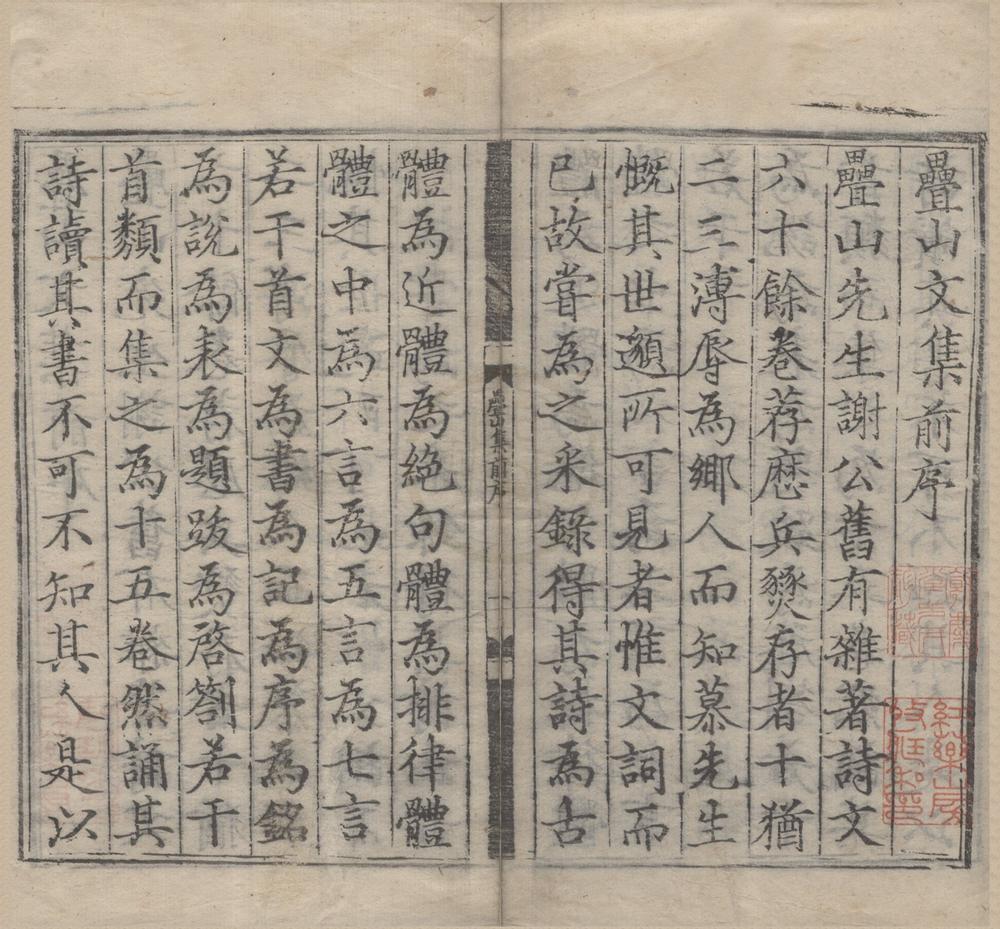 疊山文集前序
疊山先生謝公舊有雜著詩文
六十餘巻荐歴兵燹存者十猶
二三溥辱為鄉人而知慕先生
慨其世邈所可見者惟文詞而
已故嘗為之采錄得其詩為古
疊山集前序
一
體為近體為絕句體為排律體
體之中為六言為五言為七言
若干首文為書為記為序為銘
為說為表為題跋為啓劄若干
首類而集之為十五巻然誦其
詩讀其書不可不知其人是以